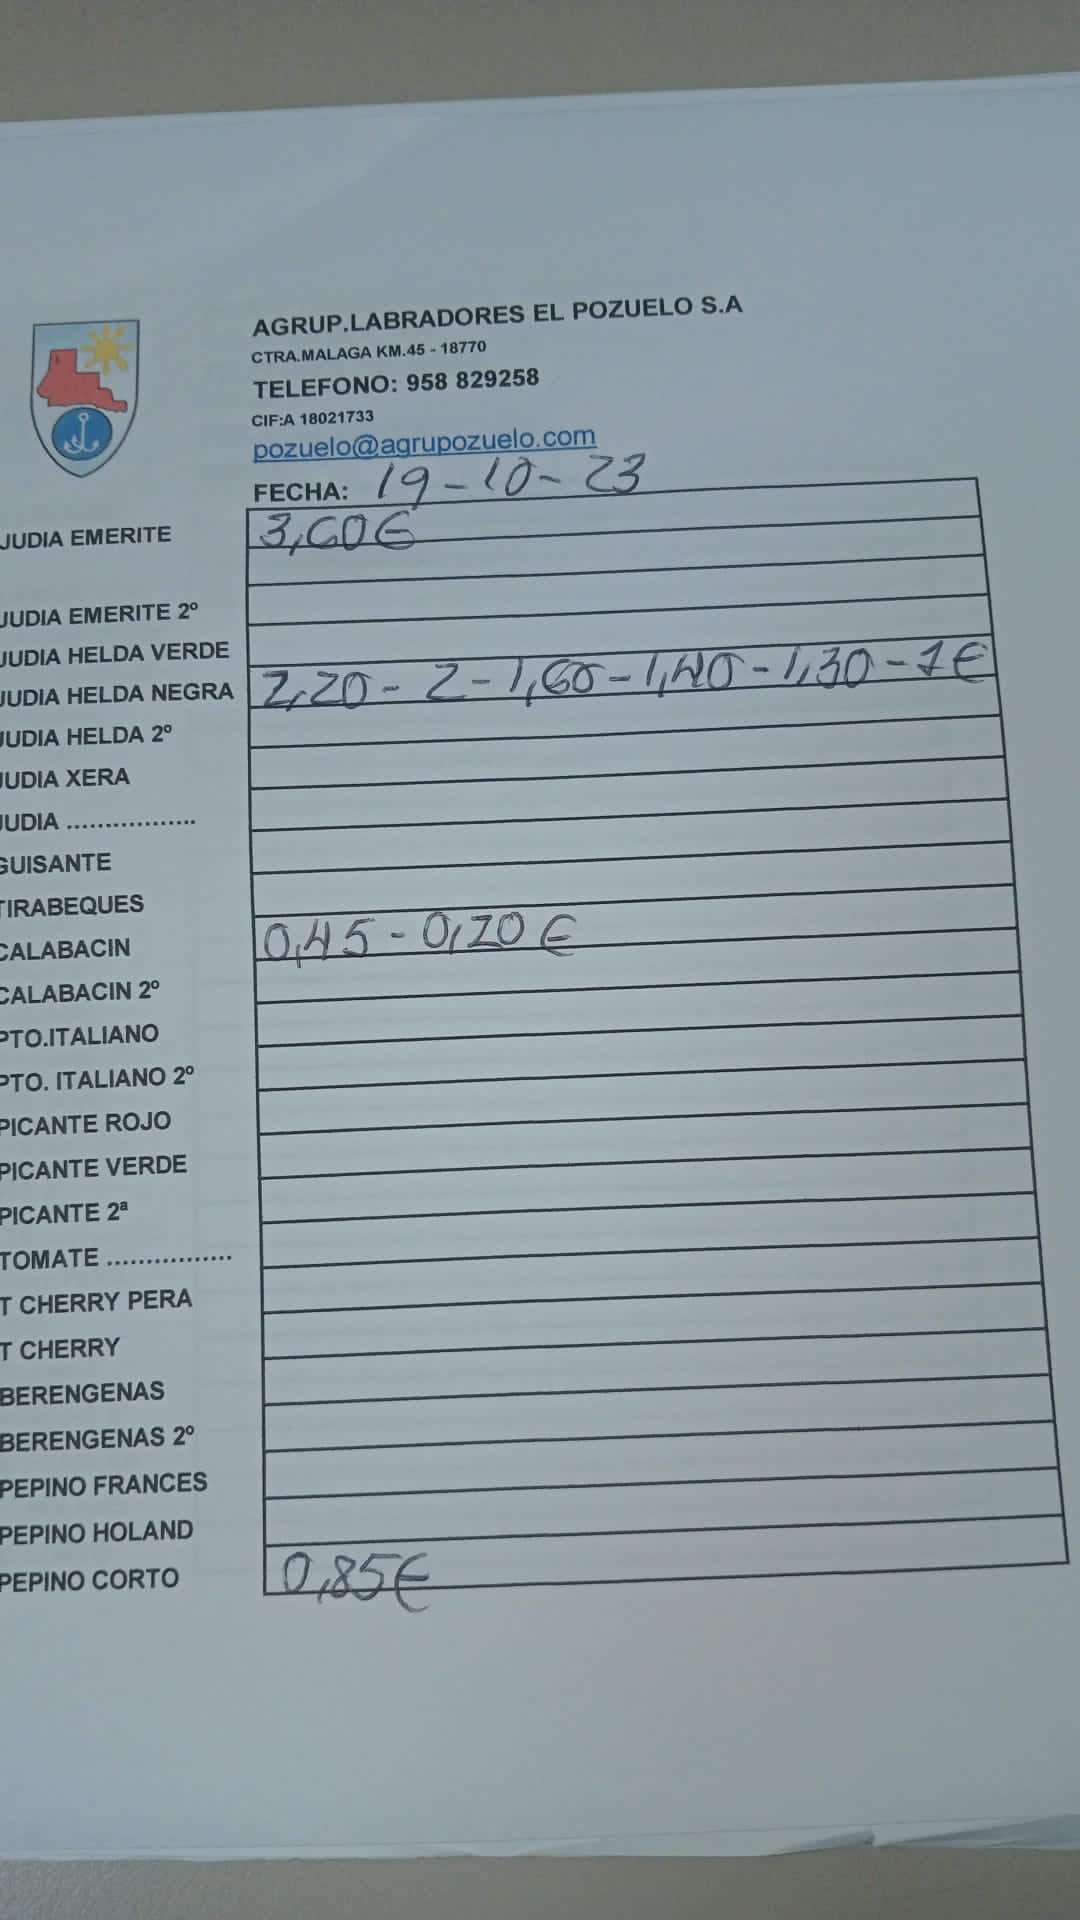 AGRUP.LABRADORES EL POZUELO S.A
CTRA.MALAGA KM.45 - 18770
TELEFONO: 958 829258
CIF:A 18021733
pozuelo@agrupozuelo.com
FECHA: 19-10-23
JUDIA EMERITE 3,60€
JUDIA EMERITE 2º
JUDIA HELDA VERDE
JUDIA HELDA NEGRA 2,20 - 2 - 1,60 - 1,40 - 1,30 - 1€
JUDIA HELDA 2º
JUDIA XERA
JUDIA .................
GUISANTE
TIRABEQUES
CALABACIN 0,45 - 0,20€
CALABACIN 2º
PTO.ITALIANO
PTO. ITALIANO 2º
PICANTE ROJO
PICANTE VERDE
PICANTE 2ª
TOMATE ................
T CHERRY PERA
T CHERRY
BERENGENAS
BERENGENAS 2º
PEPINO FRANCES
PEPINO HOLAND
PEPINO CORTO 0,85€